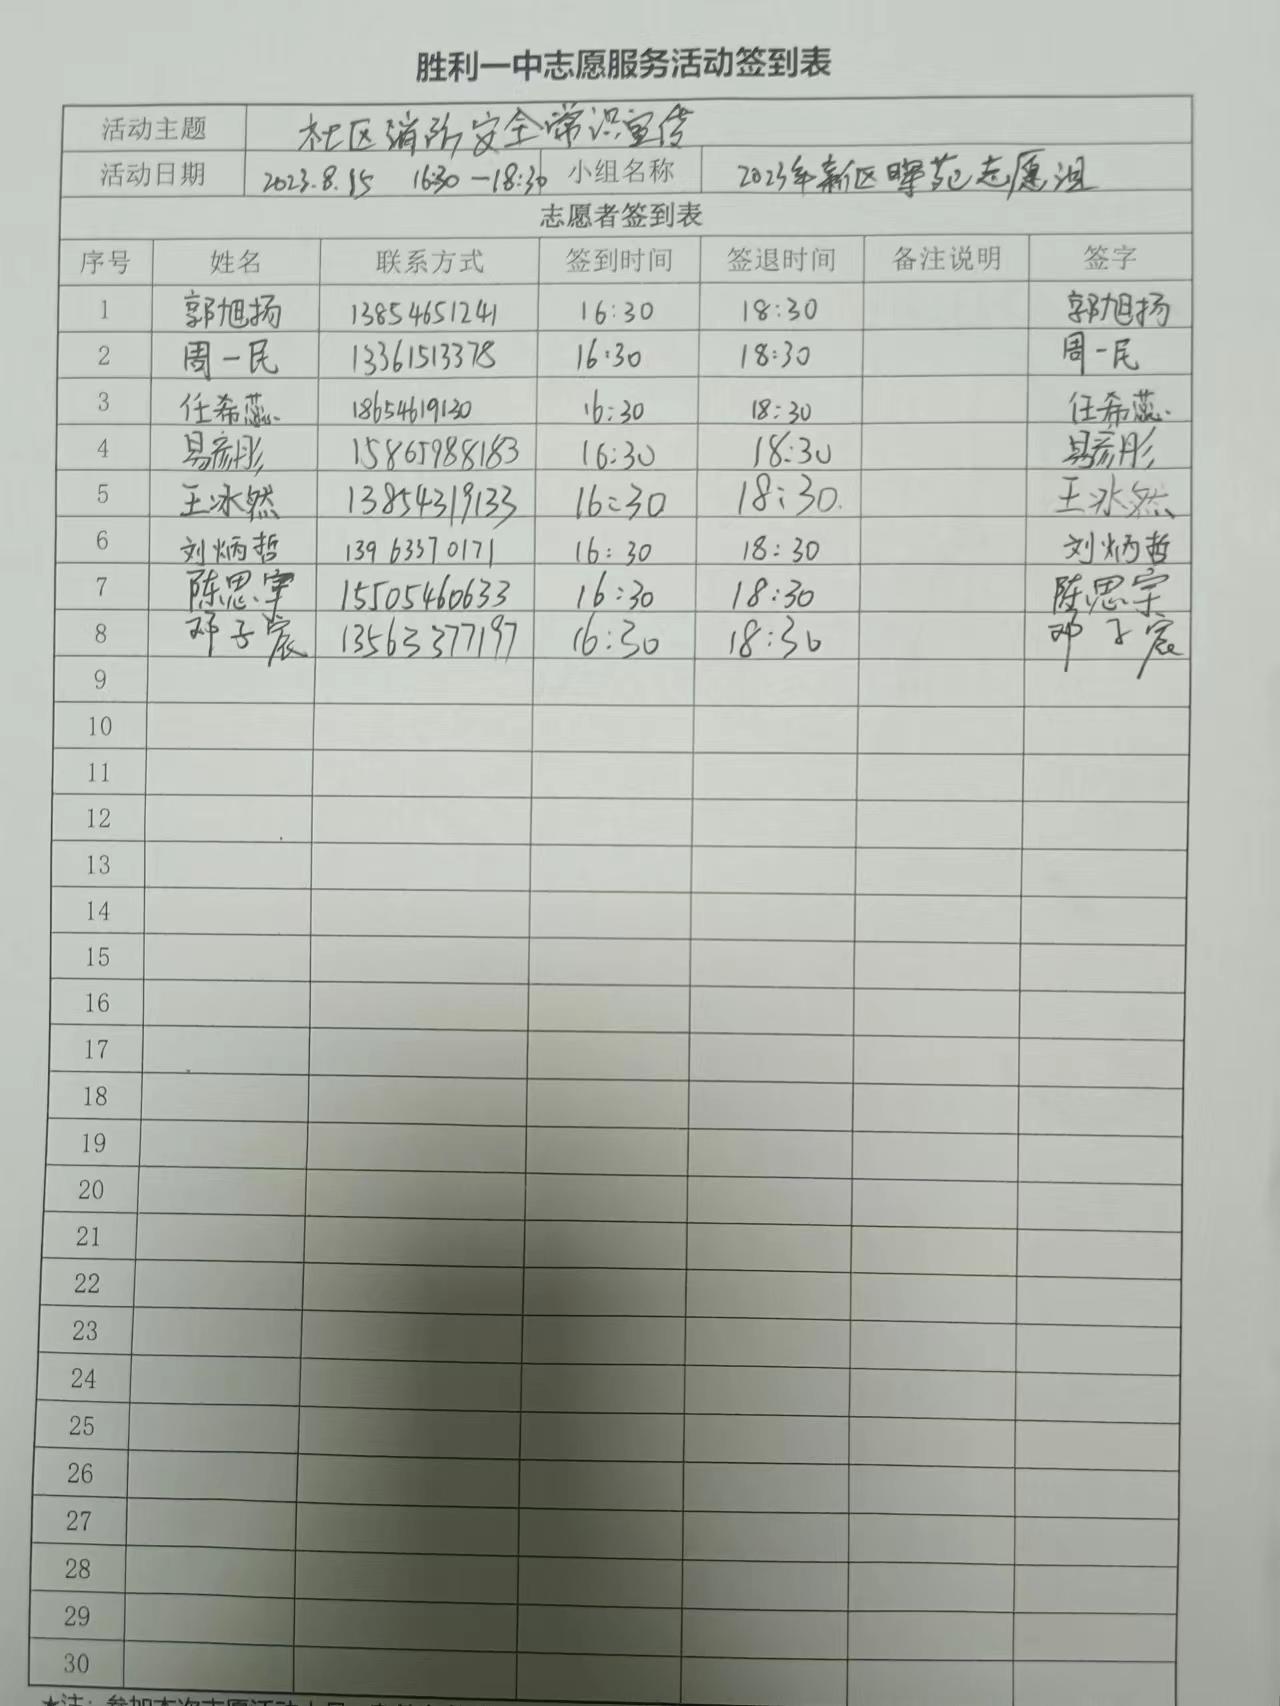 胜利一中志愿服务活动签到表
活动主题 社区消防安全常识宣传
活动日期 2023.8.15 16:30—18:30 小组名称 2023年新区晖苑志愿组
志愿者签到表
序号 姓名 联系方式 签到时间 签退时间 备注说明 签字
1 郭旭扬 13854651241 16:30 18:30 郭旭扬
2 周一民 13361513378 16:30 18:30 周一民
3 任希蕊 18654619130 16:30 18:30 任希蕊
4 易彦彤 15865988183 16:30 18:30 易彦彤
5 王冰然 13854319133 16:30 18:30. 王冰然
6 刘炳哲 13963370171 16:30 18:30 刘炳哲
7 陈思宇 15505460633 16:30 18:30 陈思宇
8 邓子宸 13563377197 16:30 18:30 邓子宸
9
10
11
12
13
14
15
16
17
18
19
20
21
22
23
24
25
26
27
28
29
30
★注：参加本次志愿活动